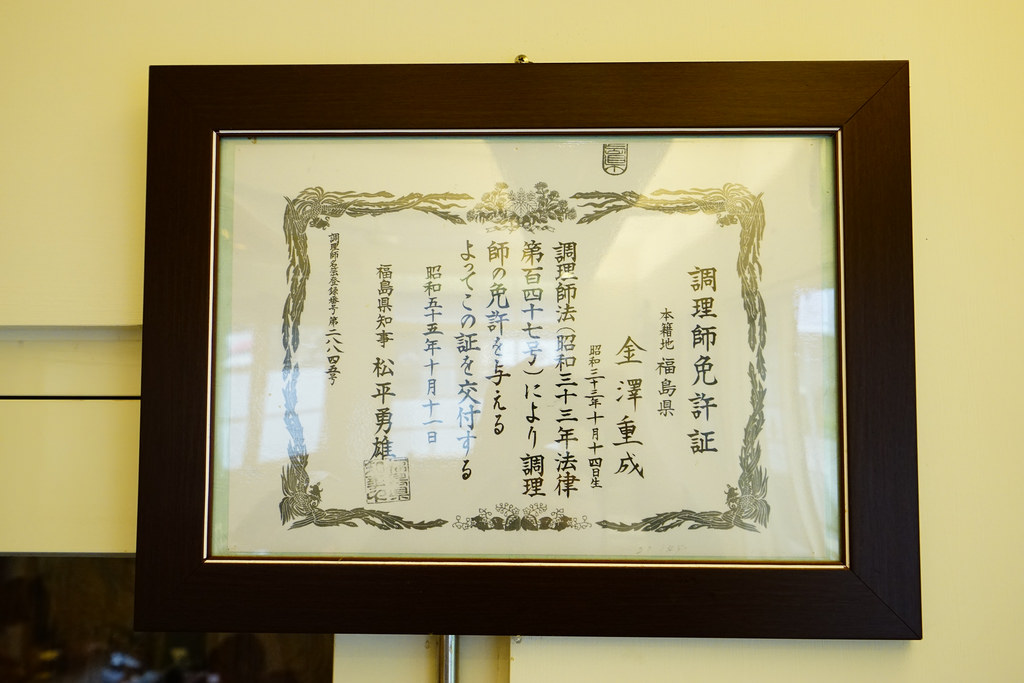 調理師免許証
本籍地 福島県
金澤重成
昭和三十三年十月十四日生
調理師法(昭和三十三年法律
第百四十七号)により調理
師の免許を与える
よってこの証を交付する
昭和五十五年十月十一日
福島県知事 松平勇雄
調理師名簿登録番号第二八八四五号